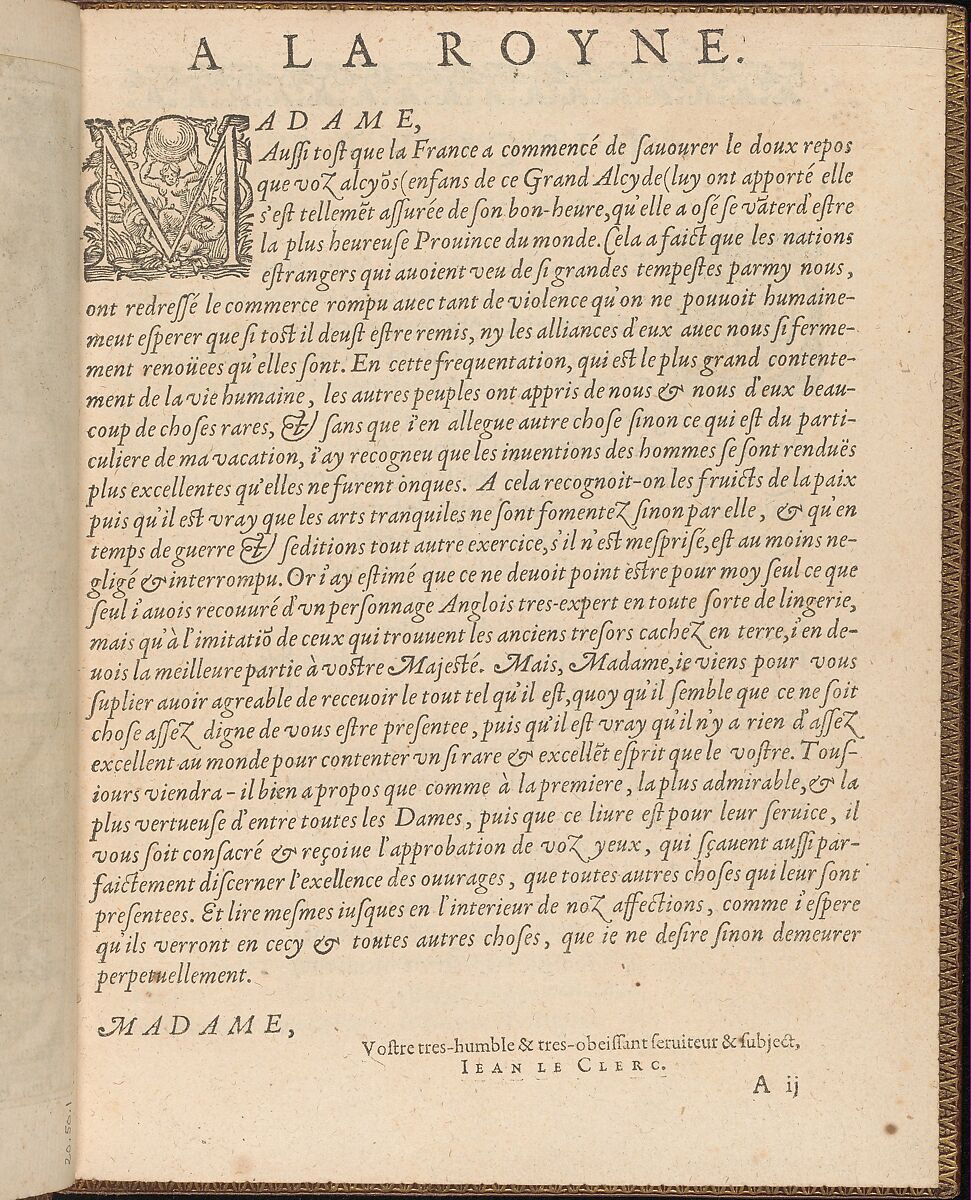 A LA ROYNE.
MADAME,
Auſſi toſt que la France a commencé de ſauourer le doux repos
que voZ alcyõs(enfans de ce Grand Alcyde(luy ont apporté elle
s'eſt tellemẽt aſſurée de ſon bon-heure,qu'elle a oſé ſe vãter d'eſtre
la plus heureuſe Prouince du monde. Cela a faict que les nations
eſtrangers qui auoient veu de ſi grandes tempeſtes parmy nous,
ont redreſſé le commerce rompu auec tant de violence qu'on ne pouuoit humaine-
meut eſperer que ſi toſt il deuſt eſtre remis, ny les alliances d'eux auec nous ſi ferme-
ment renoüees qu'elles ſont. En cette frequentation, qui eſt le plus grand contente-
ment de la vie humaine, les autres peuples ont appris de nous & nous d'eux beau-
coup de choſes rares, & ſans que i'en allegue autre choſe ſinon ce qui eſt du parti-
culiere de ma vacation, i'ay recogneu que les inuentions des hommes ſe ſont renduës
plus excellentes qu'elles ne furent ònques. A cela recognoit-on les fruicts de la paix
puis qu'il eſt vray que les arts tranquiles ne ſont fomenteZ ſinon par elle, & qu'en
temps de guerre & ſeditions tout autre exercice, s'il n'eſt meſpriſé, eſt au moins ne-
gligé & interrompu. Or i'ay eſtimé que ce ne deuoit point eſtre pour moy ſeul ce que
ſeul i'auois recouuré d'vn perſonnage Anglois tres-expert en toute ſorte de lingerie,
mais qu'à l'imitatiõ de ceux qui trouuent les anciens treſors cacheZ en terre, i'en de-
uois la meilleure partie à voſtre Majeſté. Mais, Madame, ie viens pour vous
ſuplier auoir agreable de receuoir le tout tel qu'il eſt, quoy qu'il ſemble que ce ne ſoit
choſe aſſeZ digne de vous eſtre preſentee, puis qu'il eſt vray qu'il n'y a rien d'aſſeZ
excellent au monde pour contenter vn ſi rare & excellẽt eſprit que le voſtre. Touſ-
iours viendra-il bien a propos que comme à la premiere, la plus admirable, & la
plus vertueuſe d'entre toutes les Dames, puis que ce liure eſt pour leur ſeruice, il
vous ſoit conſacré & reçoiue l'approbation de voZ yeux, qui ſçauent auſſi par-
faictement diſcerner l'exellence des ouurages, que toutes autres choſes qui leur ſont
preſentees. Et lire meſmes iuſques en l'interieur de noZ affections, comme i'eſpere
qu'ils verront en cecy & toutes autres choſes, que ie ne deſire ſinon demeurer
perpetuellement.
MADAME,
Voſtre tres-humble & tres-obeiſſant ſeruiteur & ſubject,
IEAN LE CLERC.
A ij
20.50.1